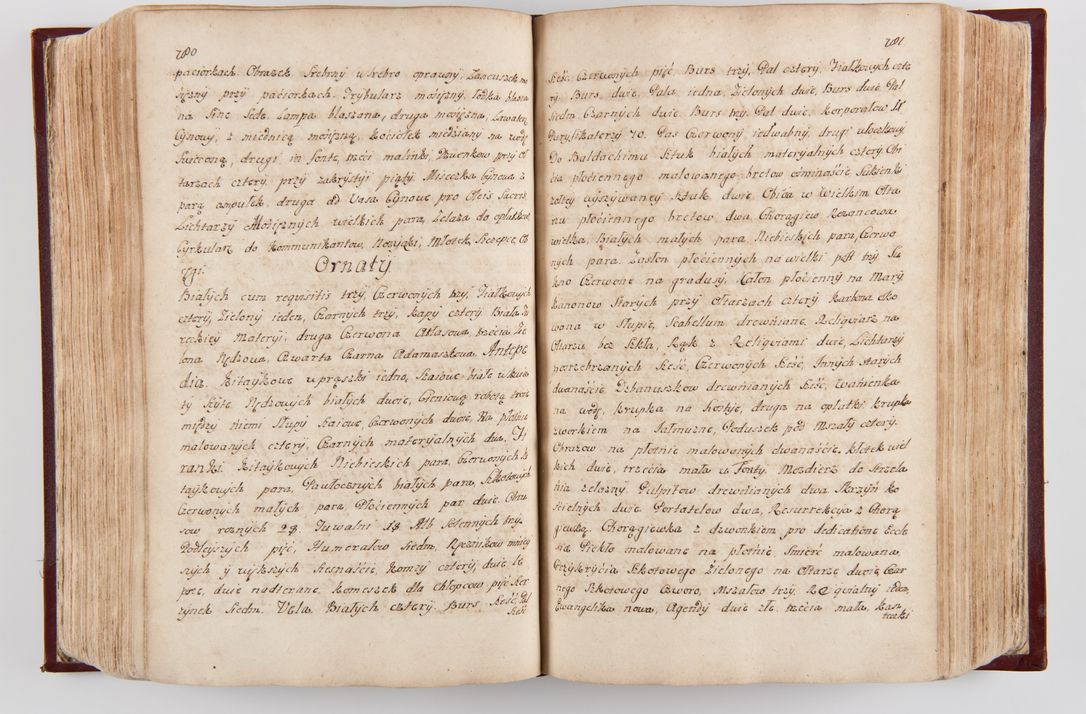 780
paciorkach. Obrazek Srebrny w srebro oprawny, Lancuszek mo
siężny przy paciorkach. Trybularz mosiężny, łodka blasza
na sine sede, Lampa blaszana, druga mosiężna, Lawatar
Cynowy, z miednicą mosiężną, kociołek miedziany na wodę
Swięconą, drugi in fonte, trzeci malinki, Dzwonkow przy oł
tarzach cztery, przy zakrystyi piąty. Miseczka cynowa z
parą ampułek, druga od Vasa Cynowe pro Oleis Sacris.
Lichtarzy Mosiężnych wielkich para, Żelaza do opłatkow
Cyrkularz do kommunikantow, Nożyczki, Młotek, Szczypce, Ob
cęgi.
Ornaty
Białych cum requisitis trzy, Czerwonych trzy, Fiałkowych
cztery, Zielony ieden, Czarnych trzy, Kapy cztery Biała Tu
reckiey Materyi, druga Czerwona Atłasowa, trzecia Zie
lona Rędzowa, Czwarta Czarna Adamaszkowa. Antepe
dia. Kitaykowe w prążki iedno, białe
ty szyte Rędzowych białych dwoie, robotą trzecie
między niemi słupy Czerwonych dwoie, Na płotnie
malowanych cztery, Czarnych materyalnych dwa, Fi
ranki. Kitaykowych Niebieskich para, Czerwonych ki
taykowych para, Pawłocznych białych para, Szkotowych
Czerwonych małych para, Płociennych par dwie. Obru
sow roznych 28. Tuwalni 18 Alb Solennych trzy.
Podleyszych pięć, Humerałow siedm, Ręcznikow mniey
szych y większych siesnaście, Komzy cztery, dwie le
psze, dwie nadterane, komeszek dla Chłopcow pięć Kor
zynek siedm. Vela Białych cztery Burs sześć, Pal
sześć

781
sześć, Czerwonych pięć, Burs trzy, Pal cztery, Fiałkowych czte
ry, Burs dwie, Pala iedna, Zielonych dwie, Burs dwie, Pal
siedm, Czarnych dwie, Burs trzy, Pal dwie, Korporałow 11
Puryfikaterzy 70. Pas Czerwony iedwabny, drugi włoczkowy.
Do Baldachimu sztuk białych materyalnych cztery. Obi
cia płociennego malowanego bretow ośmnaście, Sukienki
zołtey wyszywaney sztuk dwie Obica w Wielkim Ołta
rzu płociennego bretow dwa. Chorągiew Rozancowa
wielka, Białych małych para, Niebieskich para, Czerwo
nych para. Zasłon płociennych na wielki post trzy, Su
kno Czerwone na gradusy, Całon płocienny na Mary
Kanonow Starych przy Ołtarzach cztery karbona oko
wana w słupie, Scabellum drewniane, Relikwiarz na
Ołtarzu bez szkła, Rąk z Relikwiami dwie, Lichtarzy
posrzebrzanych sześć, Czerwonych sześć, Innych starych
dwanaście. Dzbanuszkow drewnianych sześć, Wanienka
na wodę, krupka na hostye, druga na opłatki krupka
zworkiem na Jałmużne, Poduszek pod Mszały cztery.
Obrazow na płotnie malowanych dwanaście, kłotek wiel
kich dwie, trzecia mała u Fonty. Mozdzierz do strzela
nia żelazny Pulpitow drewnianych dwa Skrzyń ko
ścielnych dwie, Portatelow dwa, Resurrekcya z Chorą
giewką. Chorągiewka z dzwonkiem pro dedicatione Eccle
siæ Piekło malowane na płotnie, Smierć malowana,
Przykrycia Szkotowego Zielonego na Ołtarze dwoie, Czar
nego Szkotowego Czworo, Mszałow trzy, Requialny ieden,
Ewangeliczka nowa, Agendy dwie złe, trzecia mała, kaza
teczki